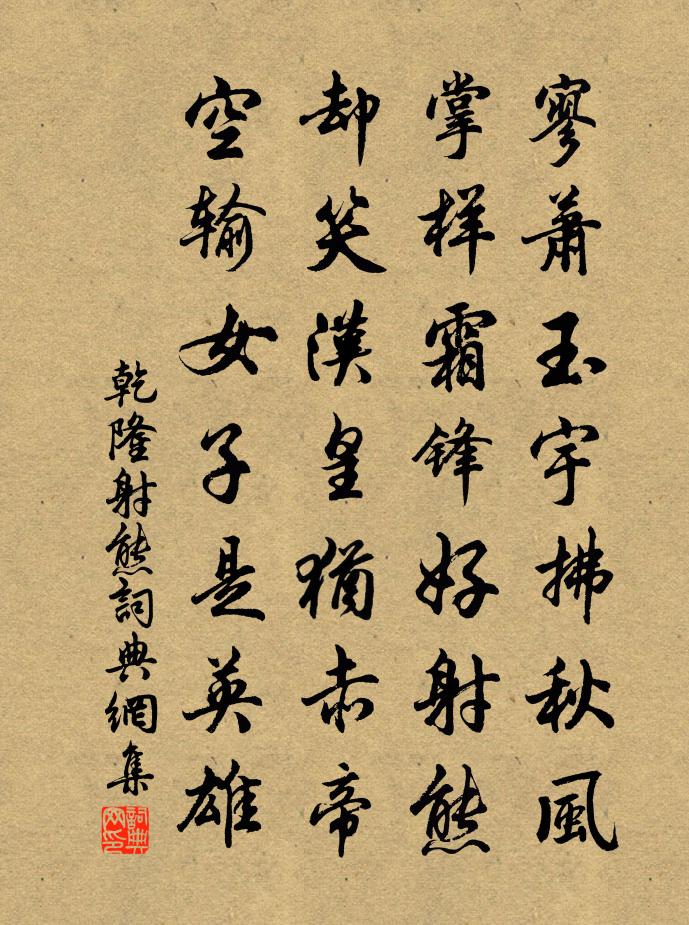 寥萧玉宇拂秋風
掌样霜锋好射熊
却笑漢皇猶赤帝
空输女子是英雄
乾隆射熊詞典網集
詞典网印